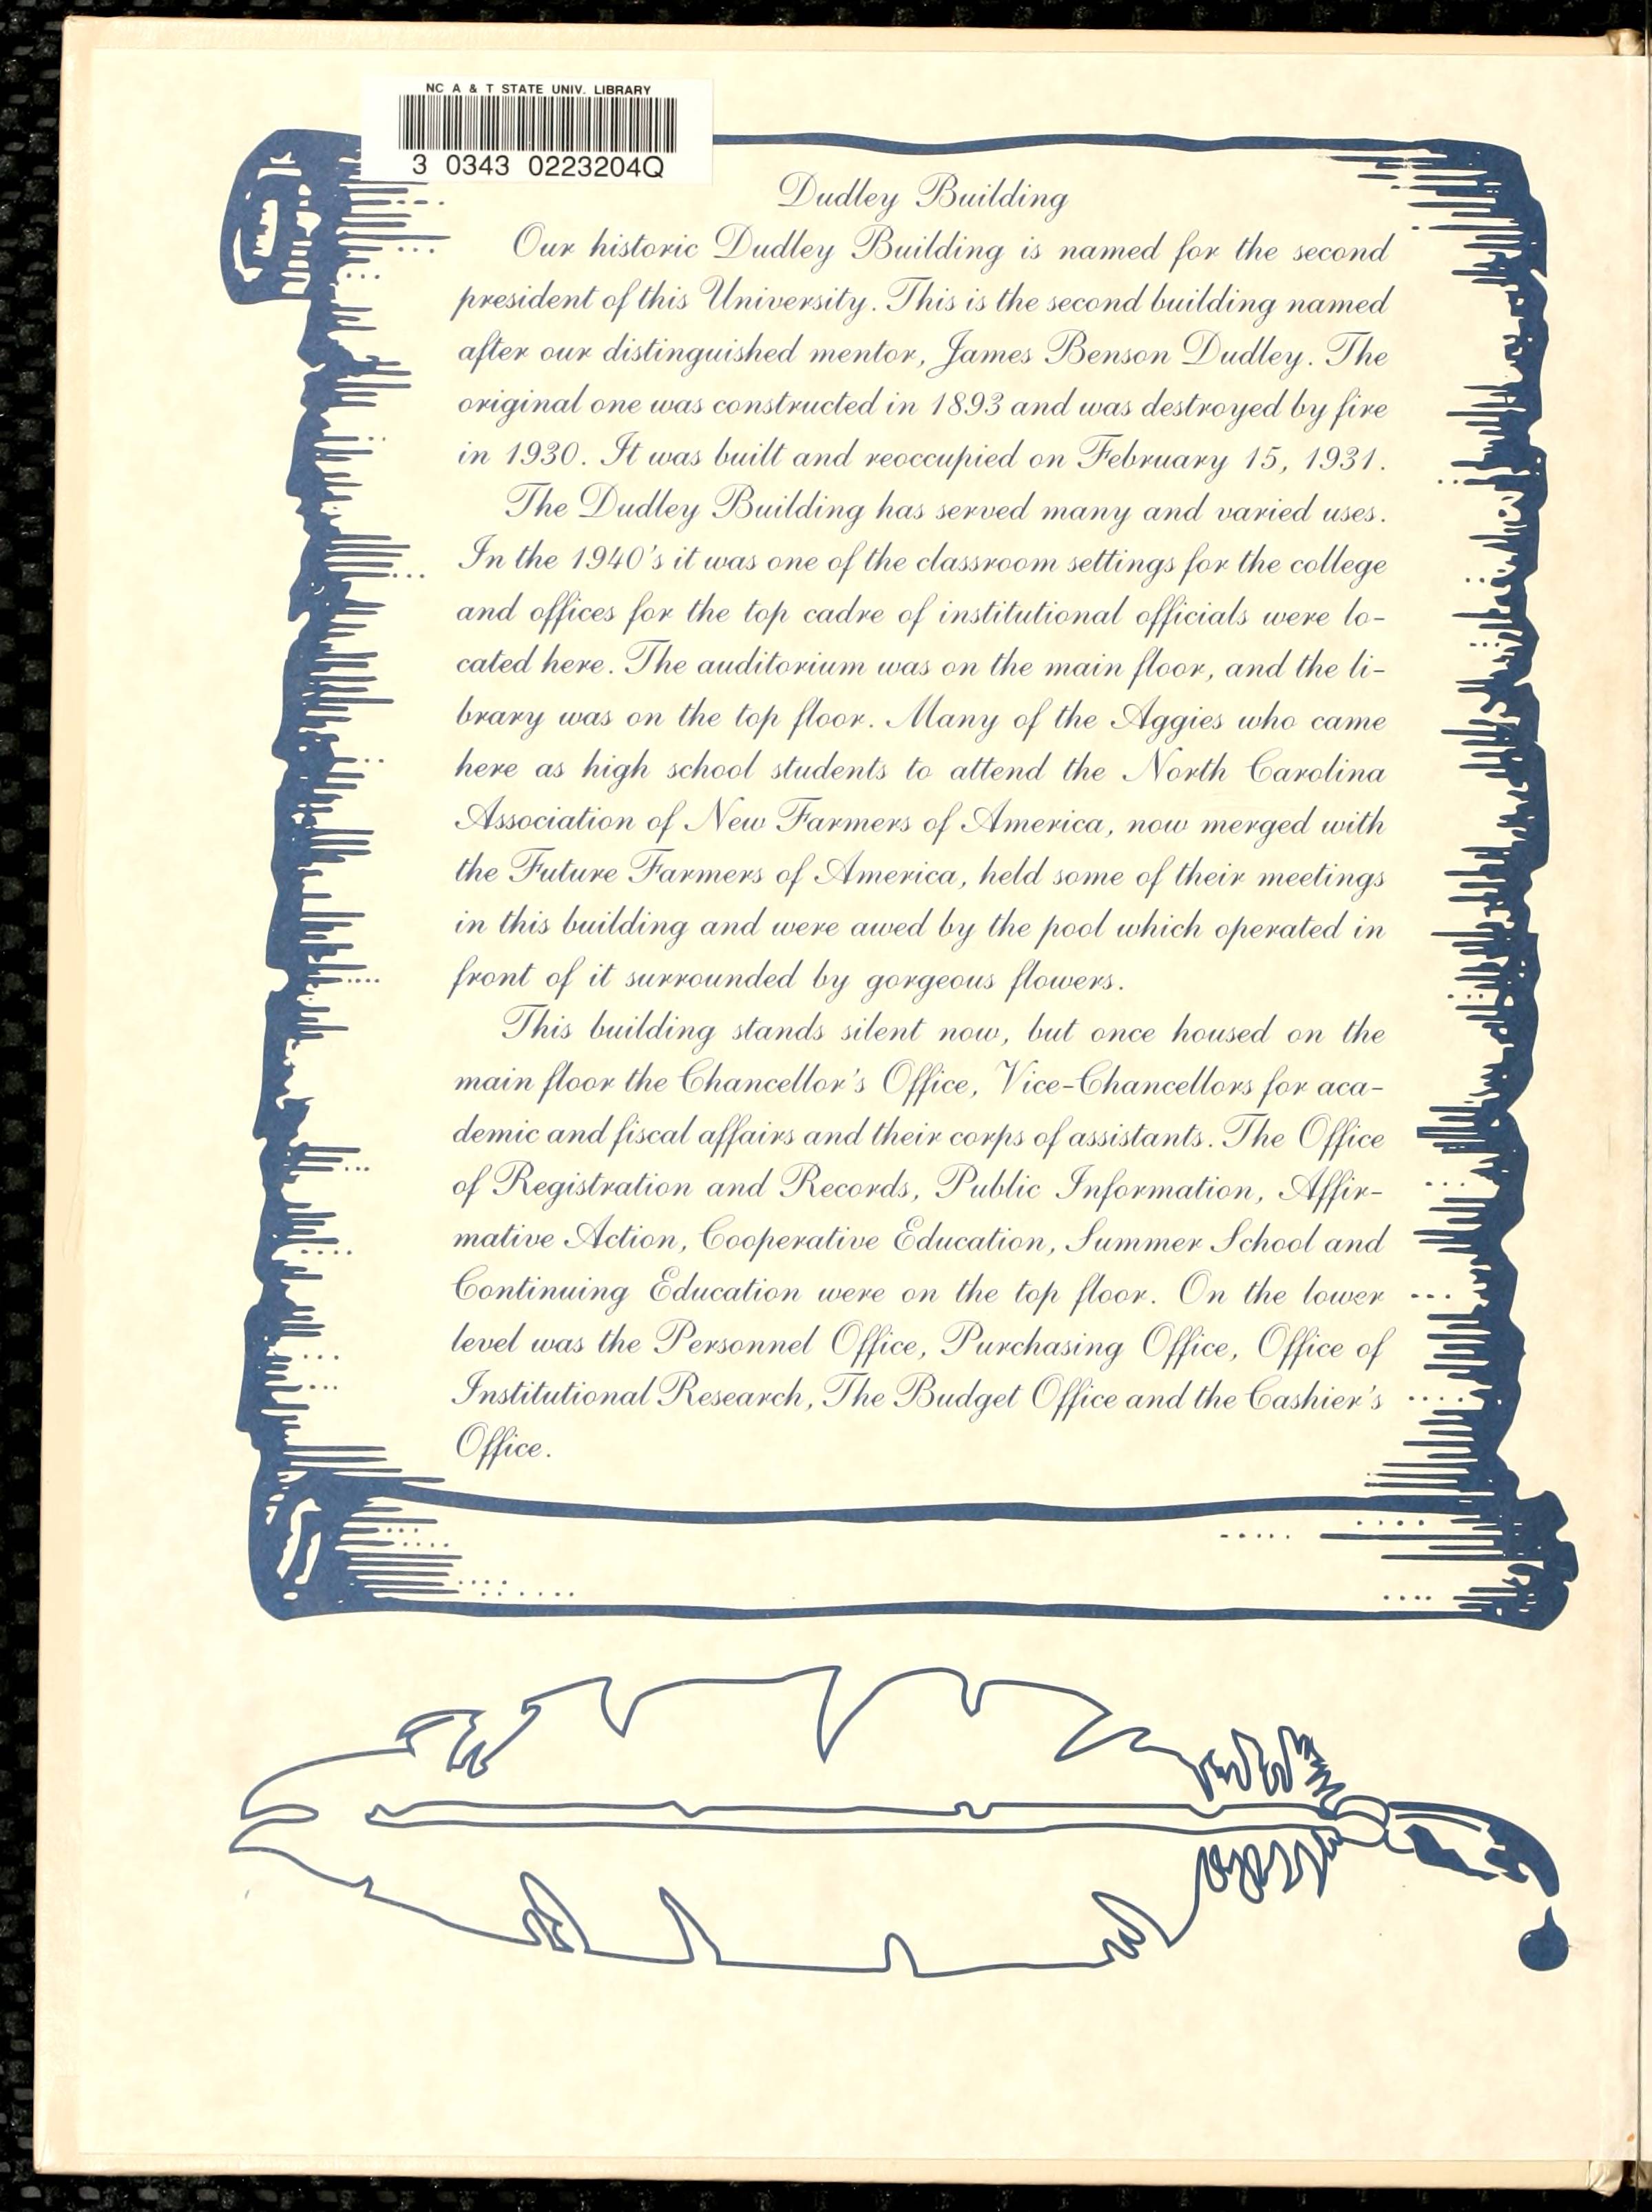 NC A & T STATE UNIV. LIBRARY
3 0343 0223204Q
Dudley Building
Our historic Dudley Building is named for the second
president of this University. This is the second building named
after our distinguished mentor, James Benson Dudley. The
original one was constructed in 1893 and was destroyed by fire
in 1930. It was built and reoccupied on February 15, 1931.
The Dudley Building has served many and varied uses.
In the 1940's it was one of the classroom settings for the college
and offices for the top cadre of institutional officials were lo-
cated here. The auditorium was on the main floor, and the li-
brary was on the top floor. Many of the Aggies who came
here as high school students to attend the North Carolina
Association of New Farmers of America, now merged with
the Future Farmers of America, held some of their meetings
in this building and were awed by the pool which operated in
front of it surrounded by gorgeous flowers.
This building stands silent now, but once housed on the
main floor the Chancellor's Office, Vice-Chancellors for aca-
demic and fiscal affairs and their corps of assistants. The Office
of Registration and Records, Public Information, Affir-
mative Action, Cooperative Education, Summer School and
Continuing Education were on the top floor. On the lower
level was the Personnel Office, Purchasing Office, Office of
Institutional Research, The Budget Office and the Cashier's
Office.